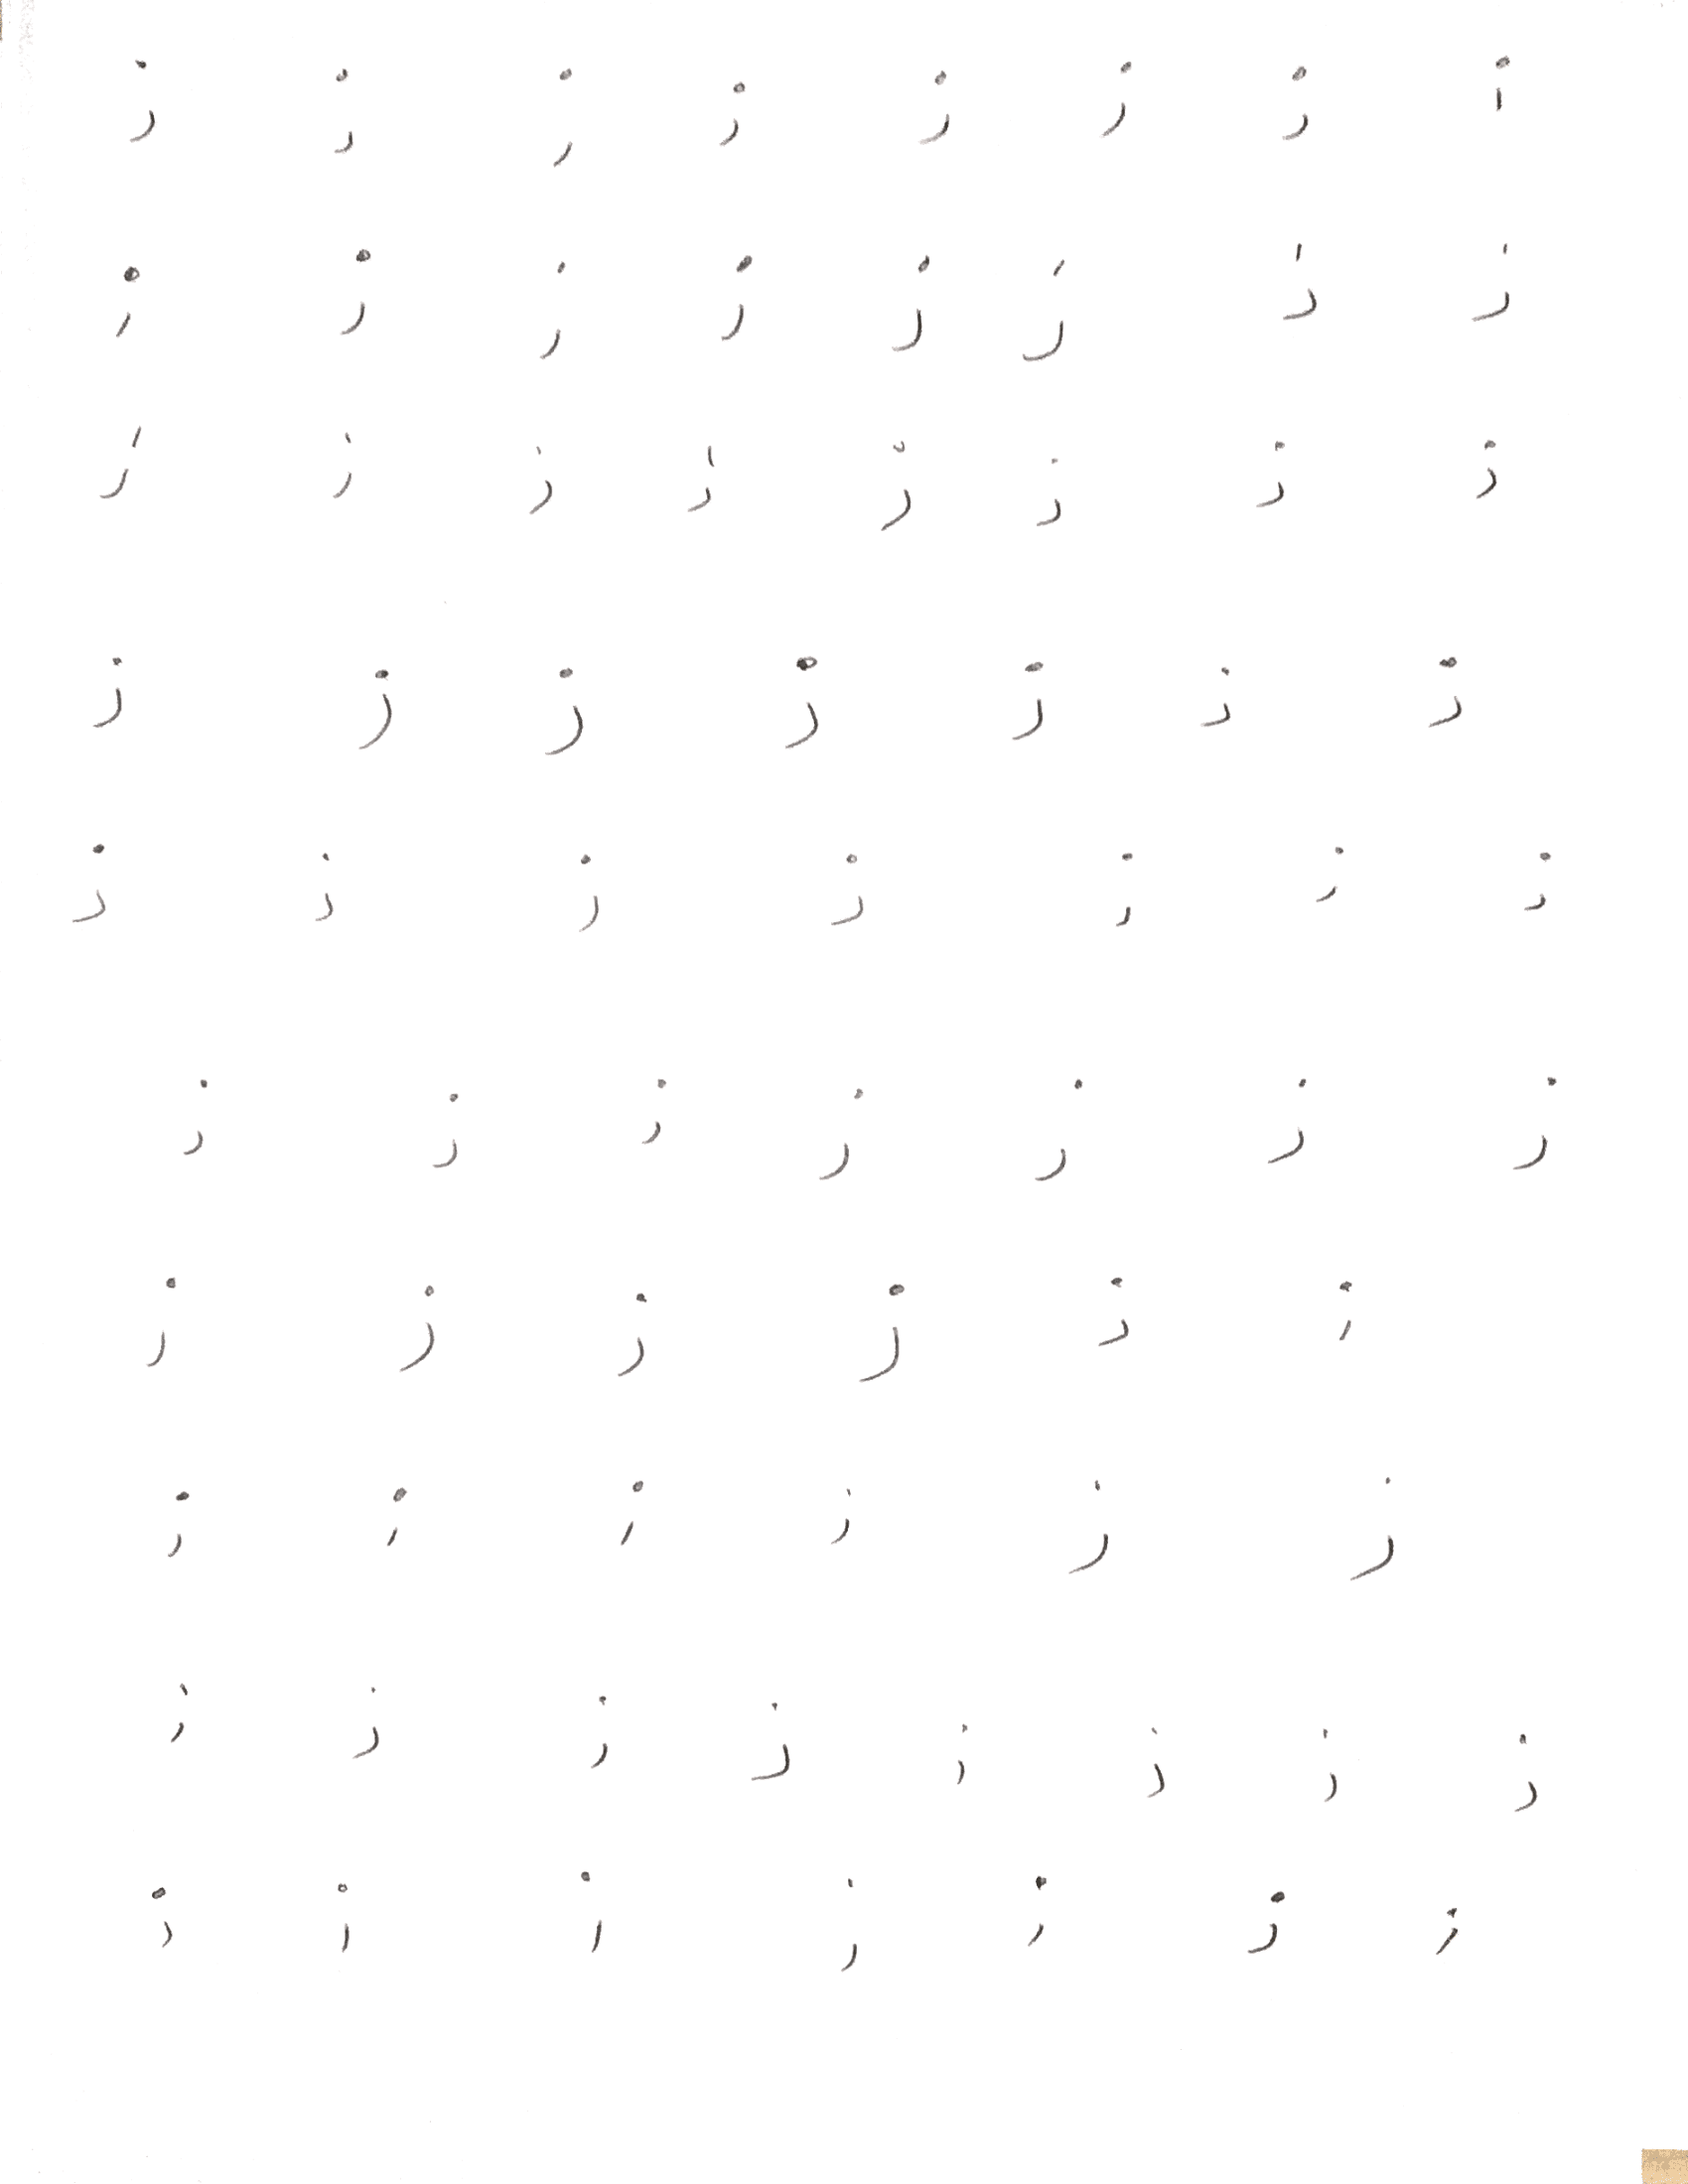 ز ز ز ز ز ز ز ز
ز ز ز ز ز ز ز ز
ز ز ز ز ز ز ز ز
ز ز ز ز ز ز ز
ز ز ز ز ز ز ز
ز ز ز ز ز ز ز
ز ز ز ز ز ز
ز ز ز ز ز ز
ز ز ز ز ز ز ز ز
ز ز ز ز ز ز ز